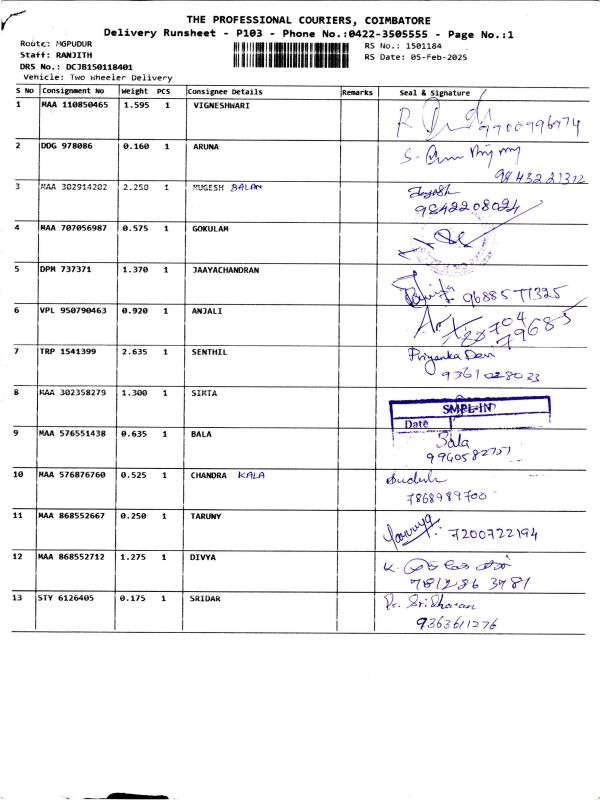 THE PROFESSIONAL COURIERS, COIMBATORE
Delivery Runsheet - P103 - Phone No.:0422-3505555 - Page No.:1
Route: MGPUDUR
RS No.: 1501184
Staff: RANJITH
RS Date: 05-Feb-2025
DRS No.: DCJB150118401
Vehicle: Two Wheeler Delivery
S No Consignment No Weight PCS Consignee Details Remarks Seal & Signature
1 MAA 110850465 1.595 1 VIGNESHWARI
9900996974
2 DDG 978086 0.160 1 ARUNA
9843221312
3 MAA 302914202 2.250 1 MUGESH BALAN
9842208024
4 MAA 707056987 0.575 1 GOKULAM
5 DPM 737371 1.370 1 JAAYACHANDRAN
9688577325
6 VPL 950790463 0.920 1 ANJALI
79685
7 TRP 1541399 2.635 1 SENTHIL Priyanka Devi
9361028023
8 MAA 302358279 1.300 1 SIMTA
SMPL-IN
Date
9 MAA 576551438 0.635 1 BALA Bala
10 MAA 576876760 0.525 1 CHANDRA KALA
7868989700
11 MAA 868552667 0.250 1 TARUNY
7200722194
12 MAA 868552712 1.275 1 DIVYA
781286 3781
13 STY 6126405 0.175 1 SRIDAR Sridharan
9363611276